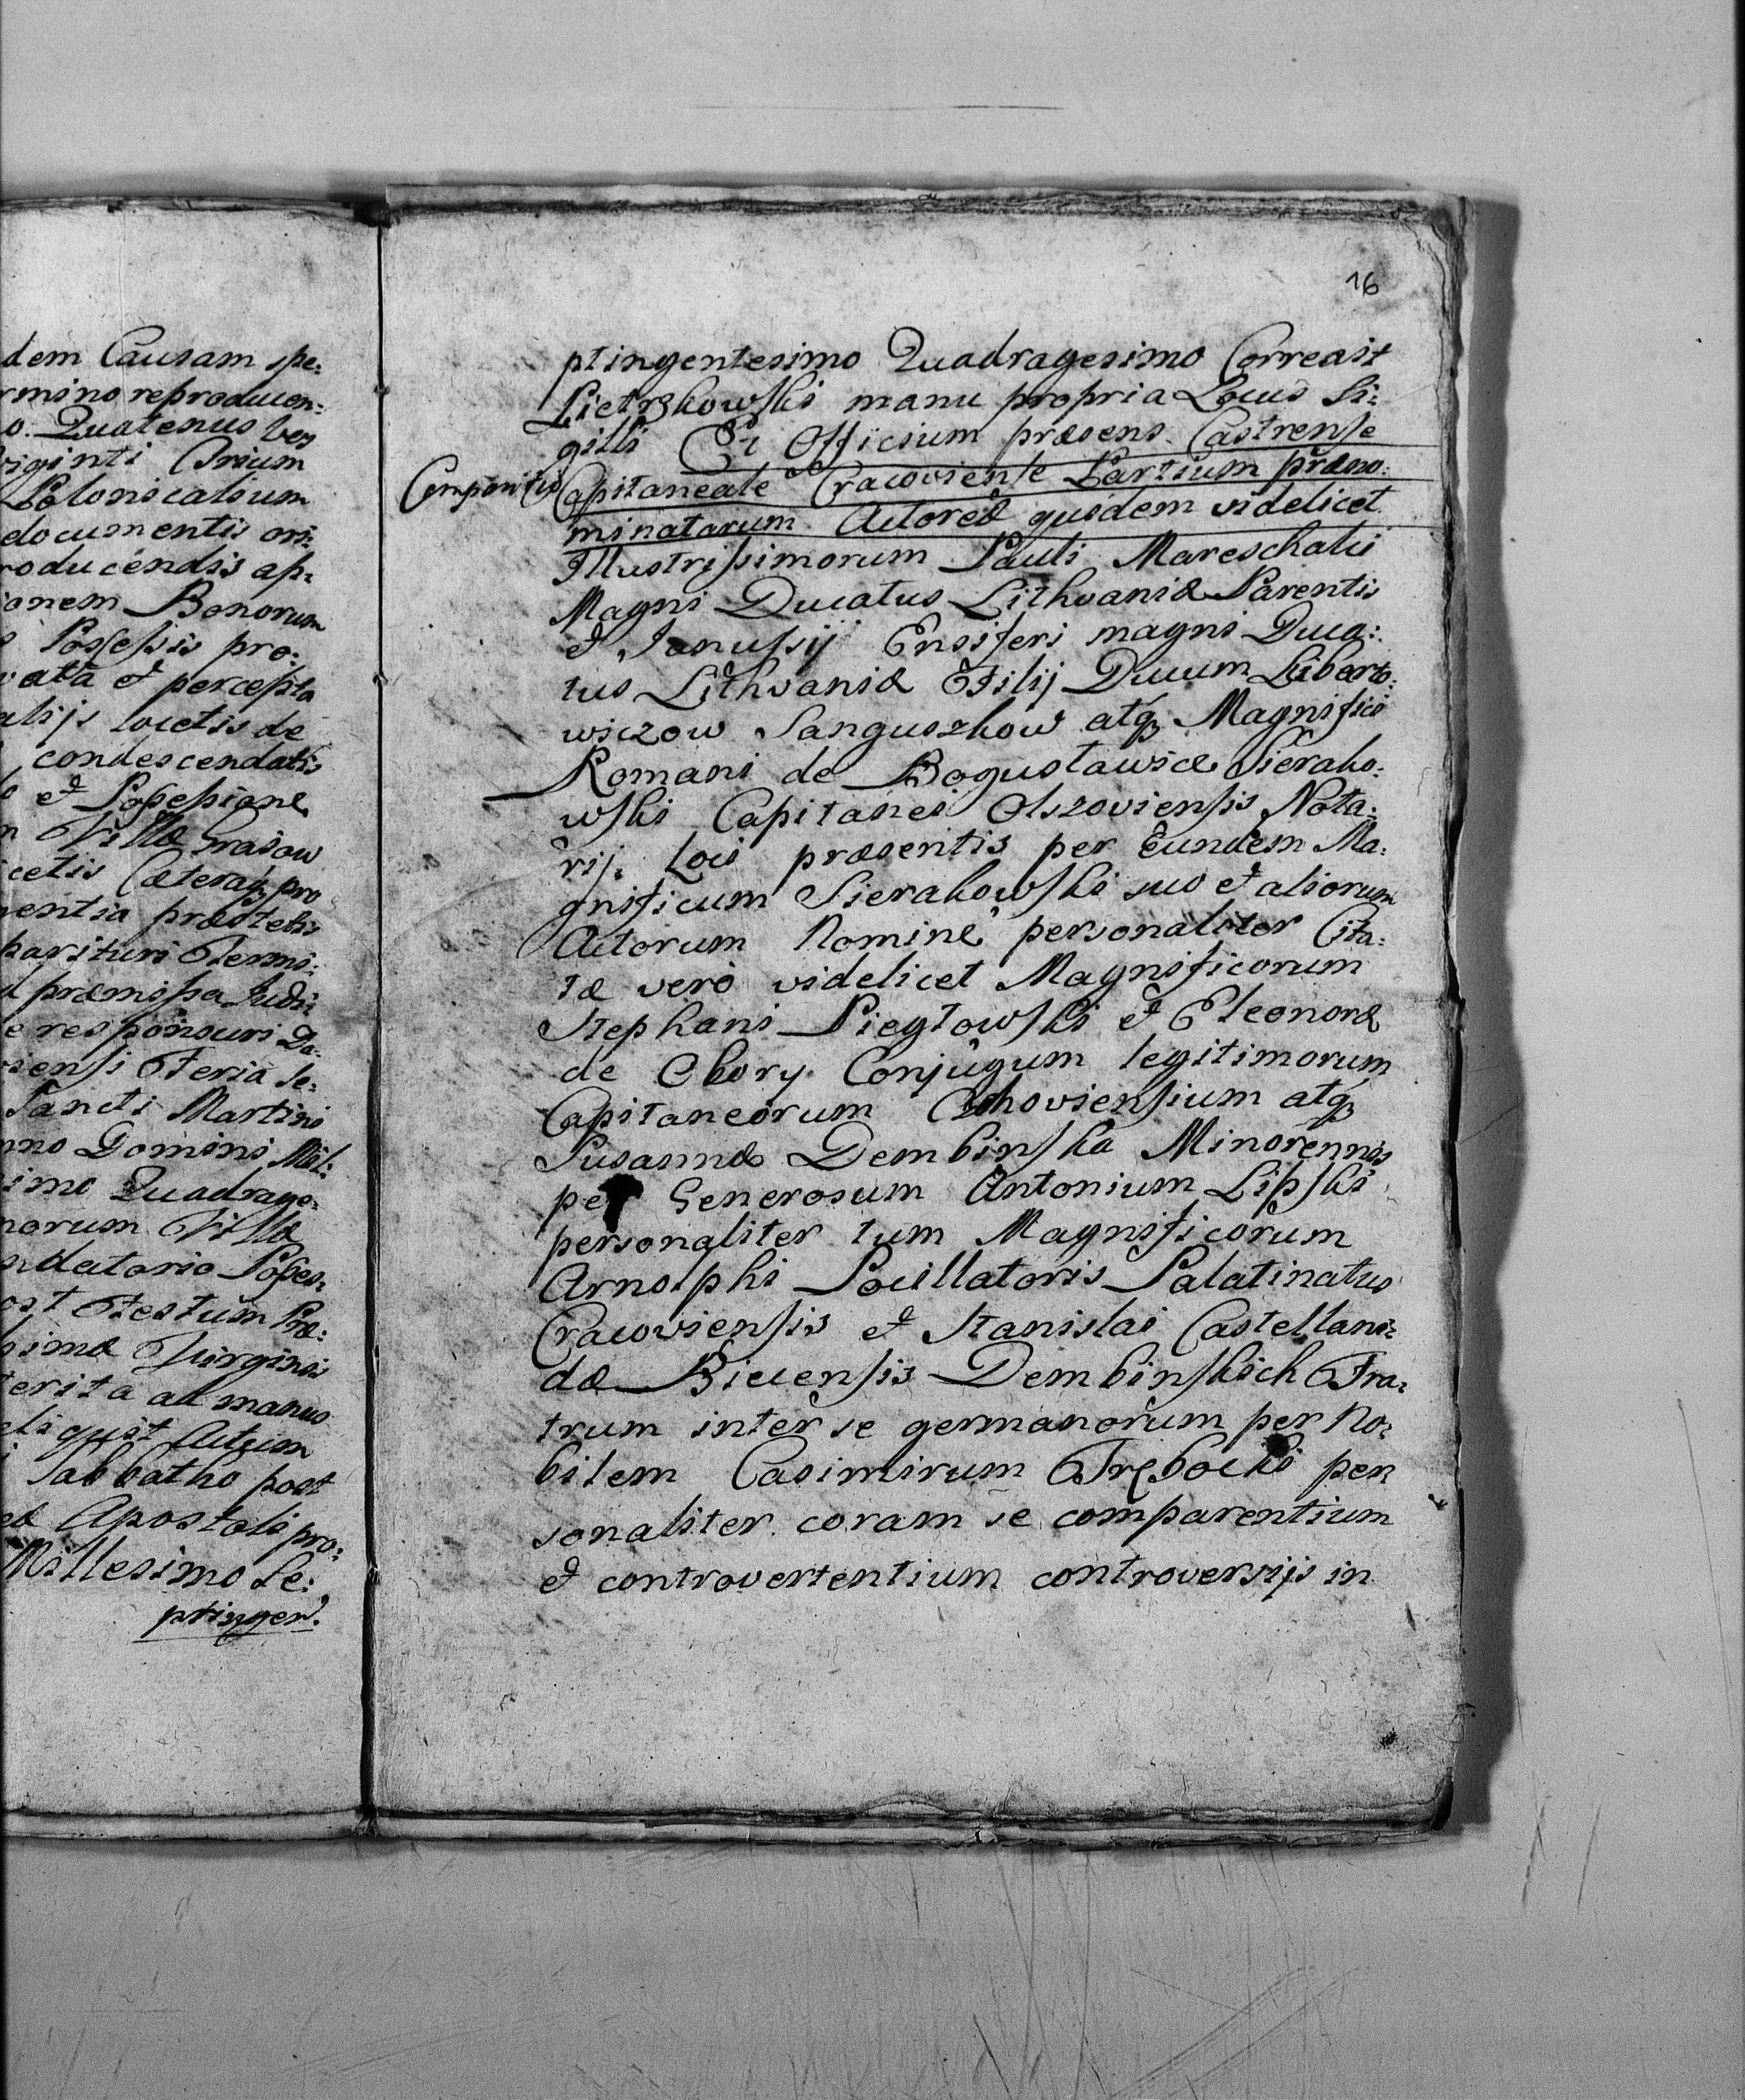 dem Causam spe:
rmino reproducen:
o. Quatenus vos
viginti Trium
Polonicalium
documentis ori:
roducendis ap:
onem Bonorum
Possessis pro:
vata et percepta
alijs loietis de
condescendatis
et Possessione
Villæ Grasow
cetis Cæteraq; pro
entia præstetis
parituri Termi:
d præmissa Judi:
e responsuri Da:
viensi Feria Se:
Sancti Martini
nno Domini Mil:
imo Quadrage:
norum Villæ
ndatario Posses:
ost Festum Præ:
simæ Virginis
terita ad manus
eliquit Actum
Sabbatho post
Apostoli pro:
Millesimo Se:
ptingen:
16
ptingentesimo Quadragesimo Correxit
Pietrzkowski manu propria Locus Si:
gilli Et Officium præsens Castrense
Compositio Capitaneale Cracoviense Partium præno:
minatarum. Actoreæ quidem videlicet
Illustrissimorum Pauli Mareschalci
Magni Ducatus Lithvaniæ Parentis
et Janussij Ensiferi magni Duca:
tus Lithvaniæ Filij Ducum Libarto:
wiczow Sanguszkow atq; Magnifici
Romani de Bogusławice Sierako:
wski Capitanei Olszoviensis Nota:
rij. Loci præsentis per Eundem Ma:
gnificum Sierakowski suo et aliorum
Actorum Nomine personaliter Cita:
tæ vero videlicet Magnificorum
Stephani Piegłowski et Eleonoræ
de Obory Conjugum legitimorum
Capitaneorum atq;
Susannæ Dembinska Minorennis
per Generosum Antonium Lipski
personaliter tum Magnificorum
Arnolphi Pocillatoris Palatinatus
Cracoviensis et Stanislai Castellani:
dæ Biecensis Dembinskich Fra:
trum inter se germanorum per No:
bilem Casimirum Trębocki per
sonaliter. coram se comparentium
et controvertentium controversijs in